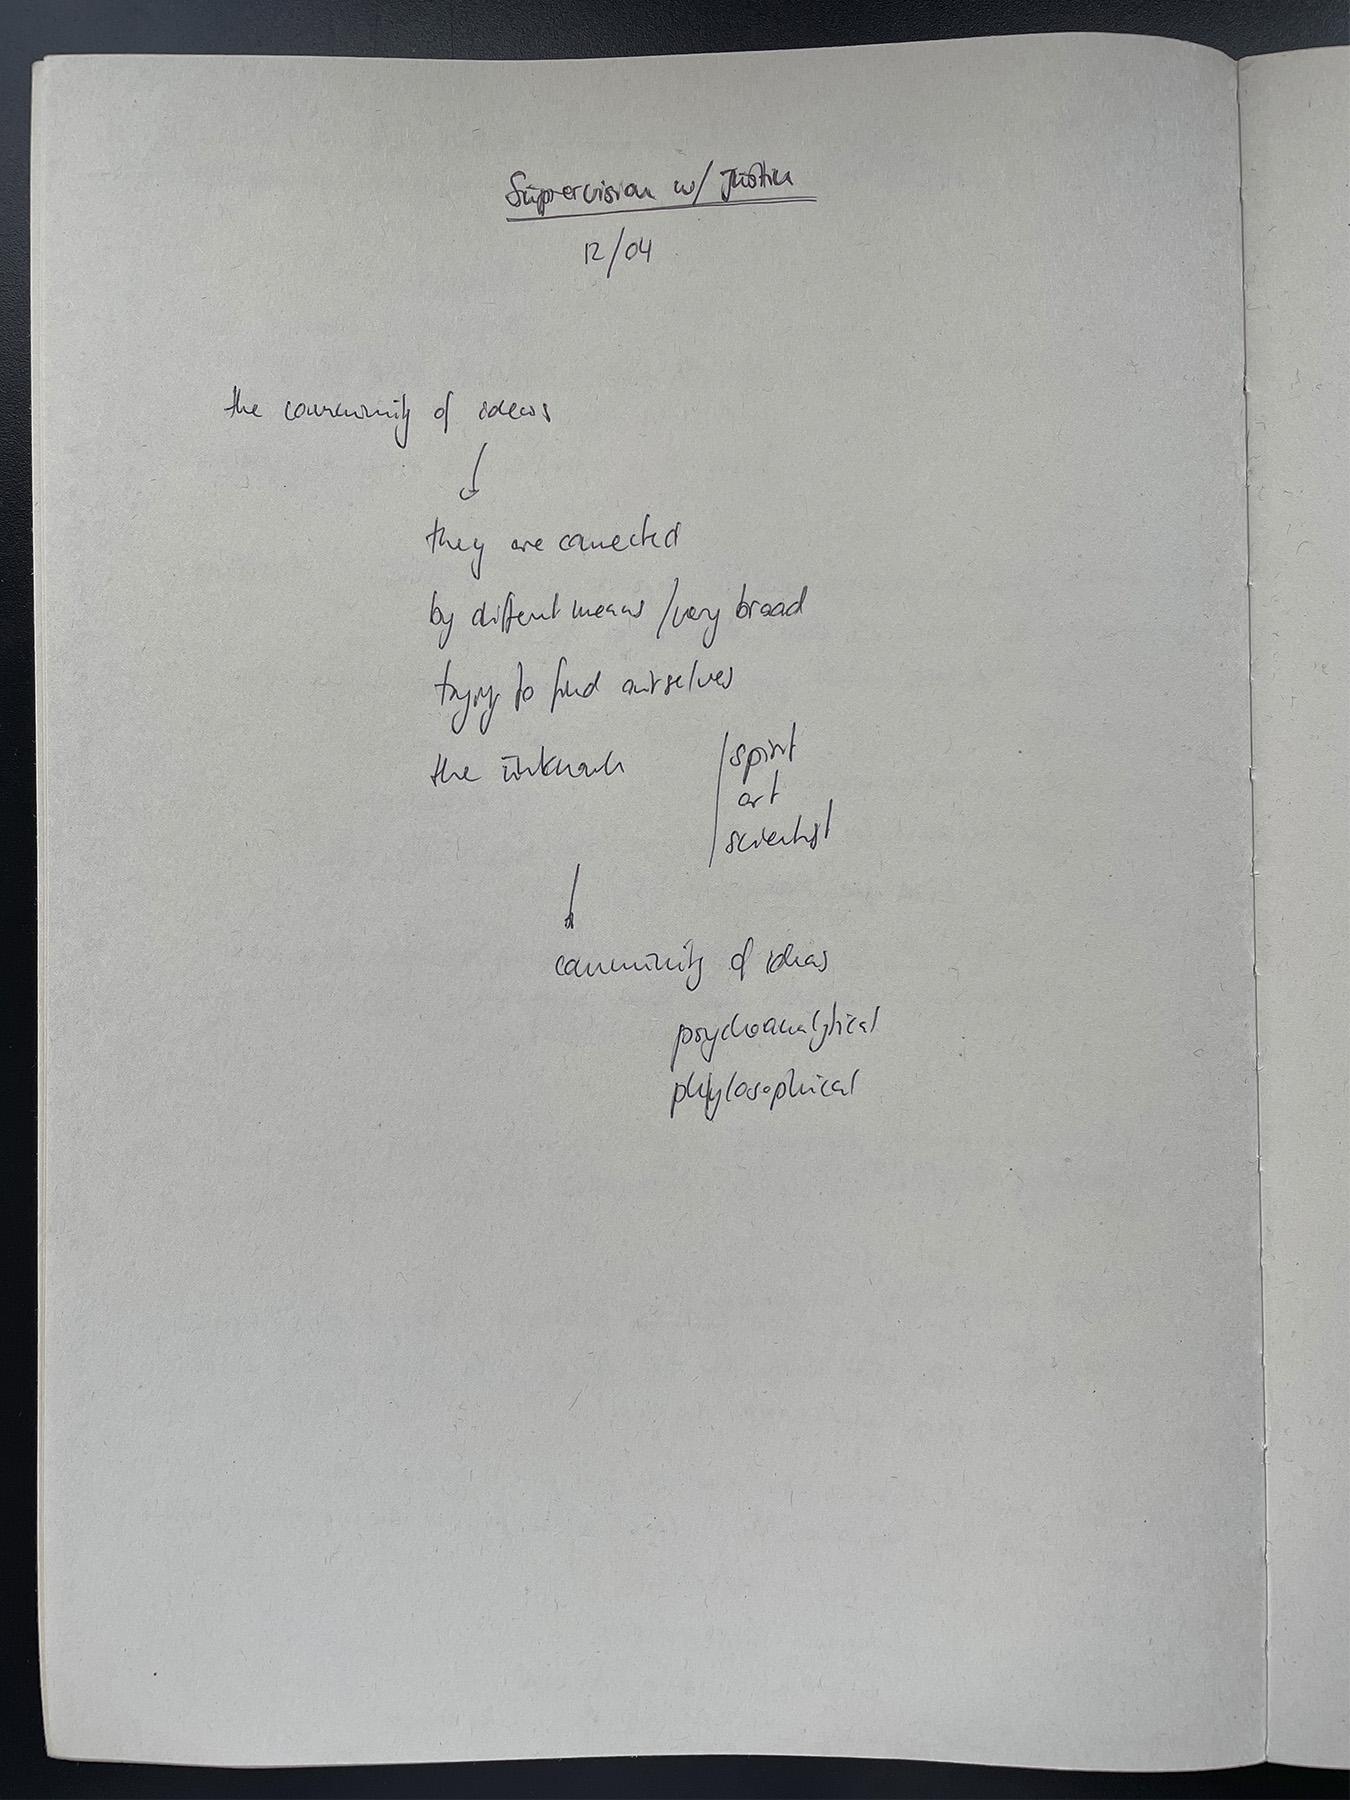 Supervision w/ Justin
12/04
the community of ideas
they are connected
by different means / very broad
trying to find ourselves
the unknown
spirit
art
scientist
community of ideas
psychoanalytical
phylosophical